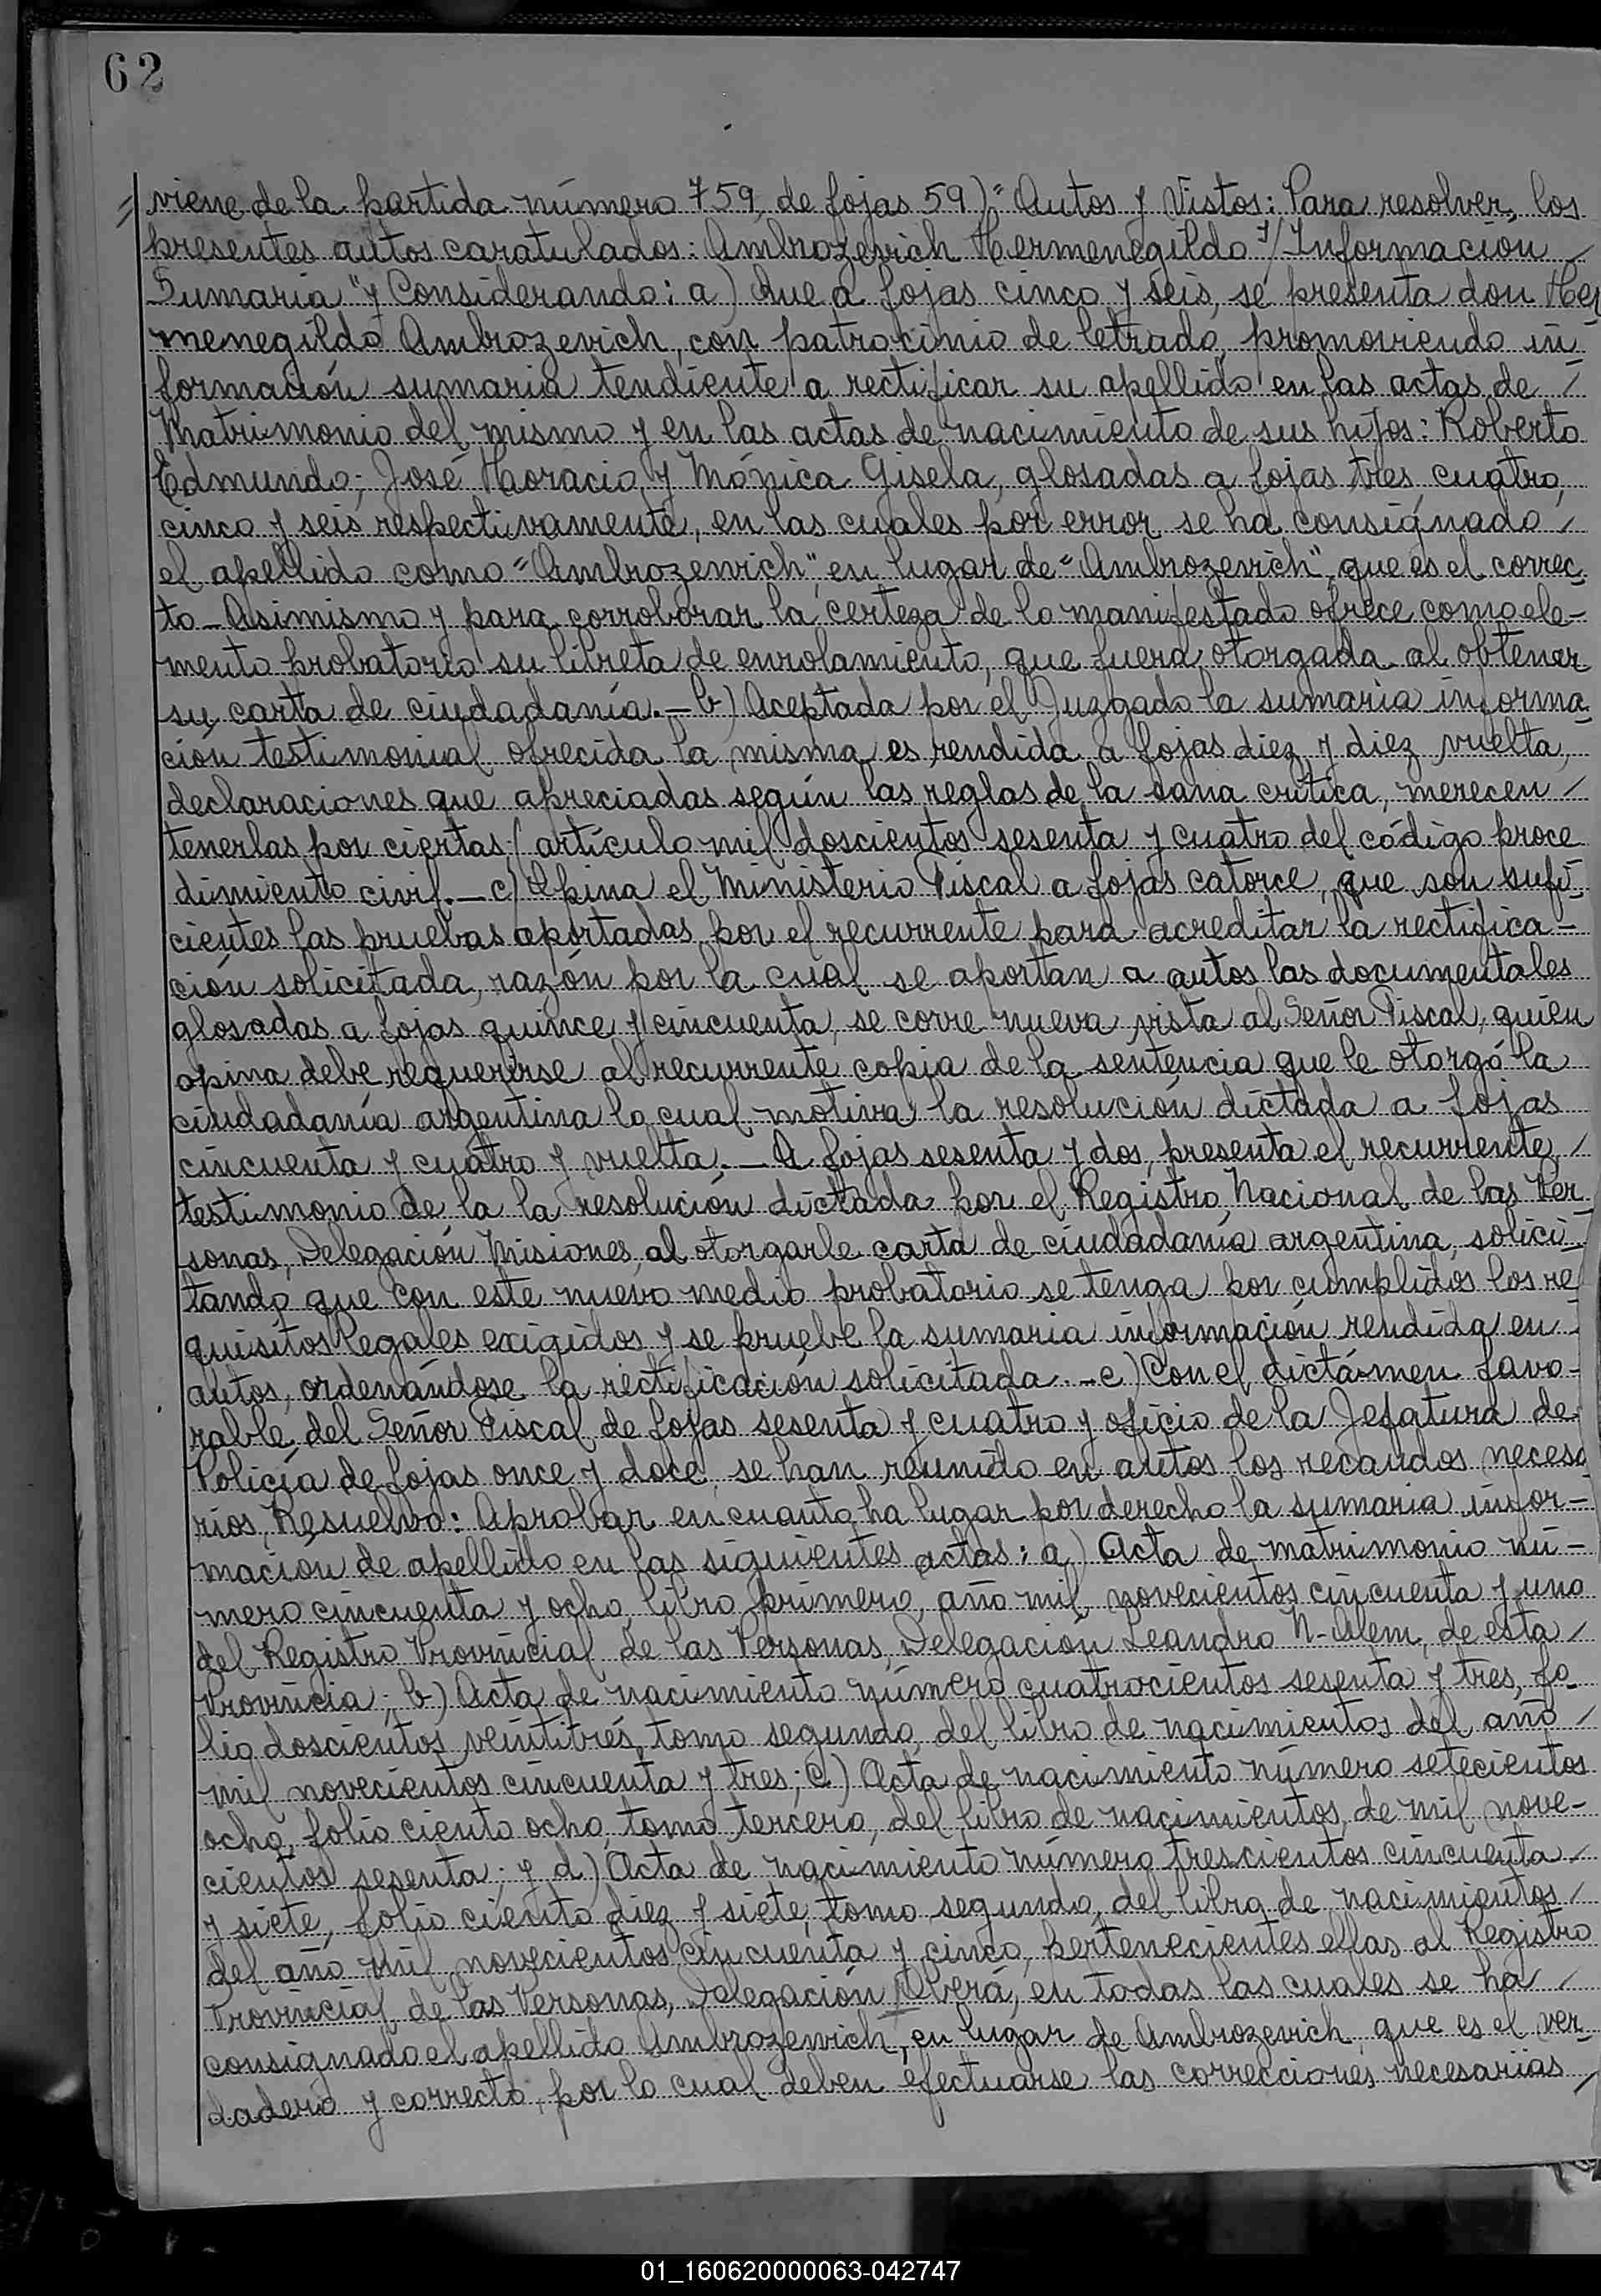 62
viene de la partida número 759, de fojas 59)" Autos y Vistos: Para resolver, los
presentes autos caratulados: Ambrozevich Hermenegildo s/Información /
Sumaria" y Considerando: a) Que a fojas cinco y seis, se presenta don Her
menegildo Ambrozevich, con patrocinio de letrado, promoviendo in-
formación sumaria tendiente a rectificar su apellido en las actas de /
Matrimonio del mismo y en las actas de nacimiento de sus hijos: Roberto
Edmundo; José Haoracio, y Mónica Gisela, glosadas a fojas tres, cuatro,
cinco y seis respectivamente, en las cuales por error se ha consignado /
el apellido como "Ambrozenvich", en lugar de "Ambrozevich", que es el correc-
to - Asimismo y para corroborar la certeza de lo manifestado ofrece como ele-
mento probatorio su libreta de enrolamiento, que fuera otorgada al obtener
su carta de ciudadanía. - b) Aceptada por el Juzgado la sumaria informa-
ción testimonial ofrecida la misma es rendida a fojas diez y diez vuelta,
declaraciones que apreciadas según las reglas de la sana crítica, merecen /
tenerlas por ciertas/ artículo mil doscientos sesenta y cuatro del código proce
dimiento civil. - c) Opina el Ministerio Fiscal a fojas catorce, que son sufi-
cientes las pruebas aportadas por el recurrente para acreditar la rectifica-
ción solicitada, razón por la cual se aportan a autos las documentales
glosadas a fojas quince y cincuenta, se corre nueva vista al Señor Fiscal, quién
opina debe requerirse al recurrente copia de la sentencia que le otorgó la
ciudadanía argentina lo cual motiva la resolución dictada a fojas
cincuenta y cuatro y vuelta. - A fojas sesenta y dos, presenta el recurrente /
testimonio de la la resolución dictada por el Registro Nacional de las Per-
sonas, Delegación Misiones, al otorgarle carta de ciudadanía argentina, solici-
tando que con este nuevo medio probatorio se tenga por cumplidos los re
quisitos legales exigidos y se pruebe la sumaria información rendida en /
autos, ordenándose la rectificación solicitada. - c) Con el dictámen favo-
rable del Señor Fiscal de fojas sesenta y cuatro y oficio de la Jefatura de
Policía de fojas once y doce, se han reunido en autos los recaudos necesa
rios, Resuelvo: Aprobar en cuanto ha lugar por derecho la sumaria infor-
mación de apellido en las siguientes actas: a) Acta de matrimonio nú-
mero cincuenta y ocho, libro primero, año mil novecientos cincuenta y uno
del Registro Provincial de las Personas, Delegación Leandro N. Alem, de esta /
Provincia; b) Acta de nacimiento número cuatrocientos sesenta y tres, fo-
lio doscientos veintitrés, tomo segundo, del libro de nacimientos del año /
mil novecientos cincuenta y tres; c) Acta de nacimiento número setecientos
ocho, folio ciento ocho, tomo tercero, del libro de nacimientos, de mil nove-
cientos sesenta; y d) Acta de nacimiento número trescientos cincuenta /
y siete, folio ciento diez y siete, tomo segundo, del libro de nacimientos /
del año mil novecientos cincuenta y cinco, pertenecientes ellas al Registro
Provincial de las Personas, Delegación Oberá, en todas las cuales se ha /
consignado el apellido Ambrozenvich, en lugar de Ambrozevich, que es el ver-
dadero y correcto, por lo cual deben efectuarse las correcciones necesariias /
01_160620000063-042747